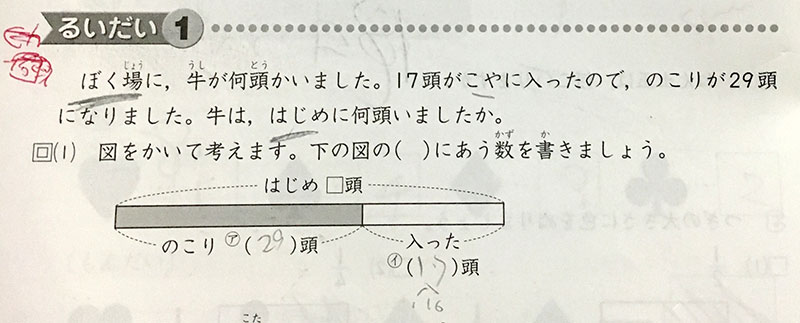 るいだい 1
ぼく場に，牛が何頭かいました。17頭がこやに入ったので，のこりが29頭
になりました。牛は，はじめに何頭いましたか。
(1) 図をかいて考えます。下の図の( )にあう数を書きましょう。
はじめ □頭
のこり ㋐(29)頭
入った
㋑(17)頭
16